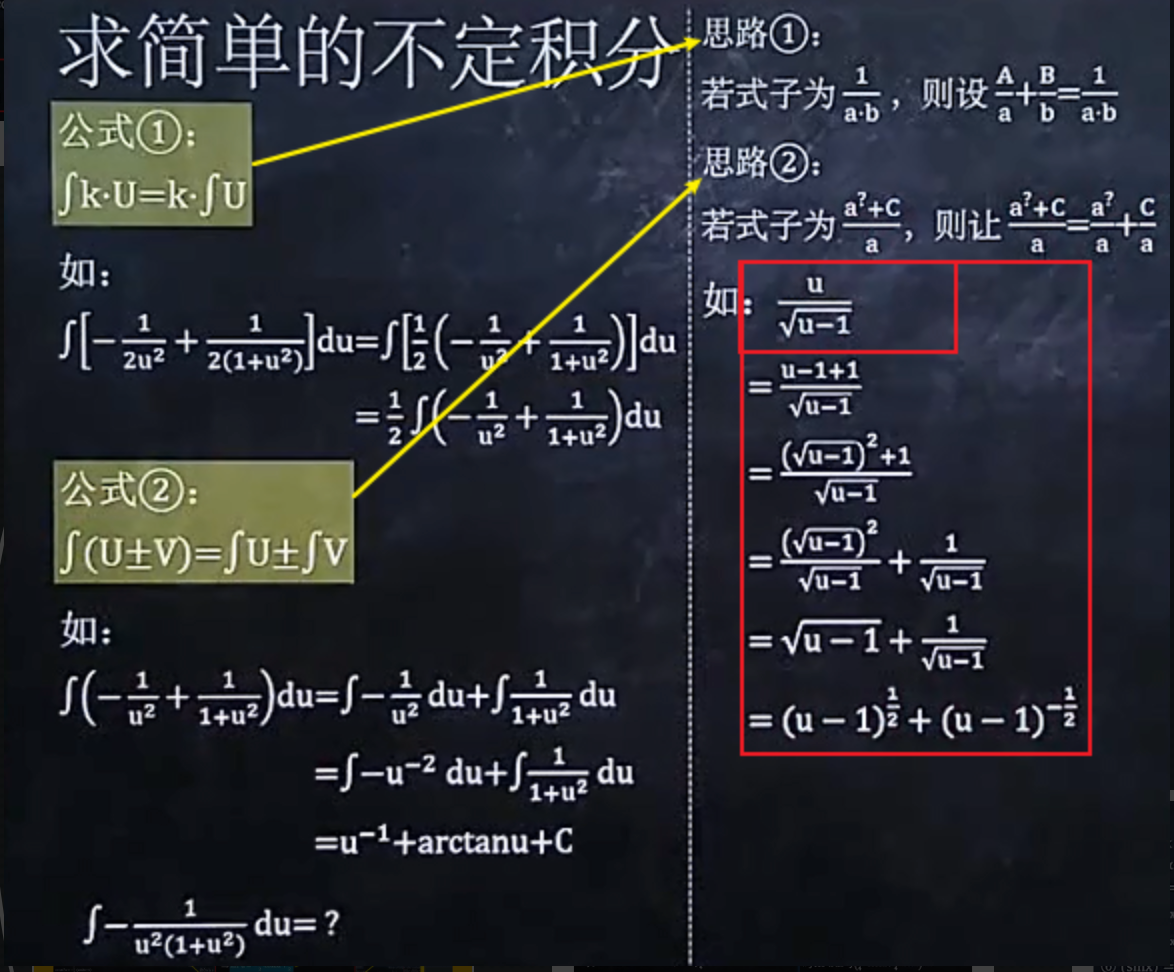 求简单的不定积分
公式①:
∫k·U=k·∫U
如:
∫[−1/(2u²) + 1/(2(1+u²))]du=∫[1/2(−1/u² + 1/(1+u²))]du
=1/2∫(−1/u² + 1/(1+u²))du
公式②:
∫(U±V)=∫U±∫V
如:
∫(−1/u² + 1/(1+u²))du=∫−1/u² du+∫1/(1+u²) du
=∫−u⁻² du+∫1/(1+u²) du
=u⁻¹+arctanu+C
∫−1/(u²(1+u²)) du=?
思路①:
若式子为1/(a·b)，则设A/a+B/b=1/(a·b)
思路②:
若式子为(a^?+C)/a，则让(a^?+C)/a=a^?/a+C/a
如: u/√(u−1)
=(u−1+1)/√(u−1)
=((√(u−1))²+1)/√(u−1)
=(√(u−1))²/√(u−1) + 1/√(u−1)
=√(u−1) + 1/√(u−1)
=(u−1)^(1/2) + (u−1)^(−1/2)